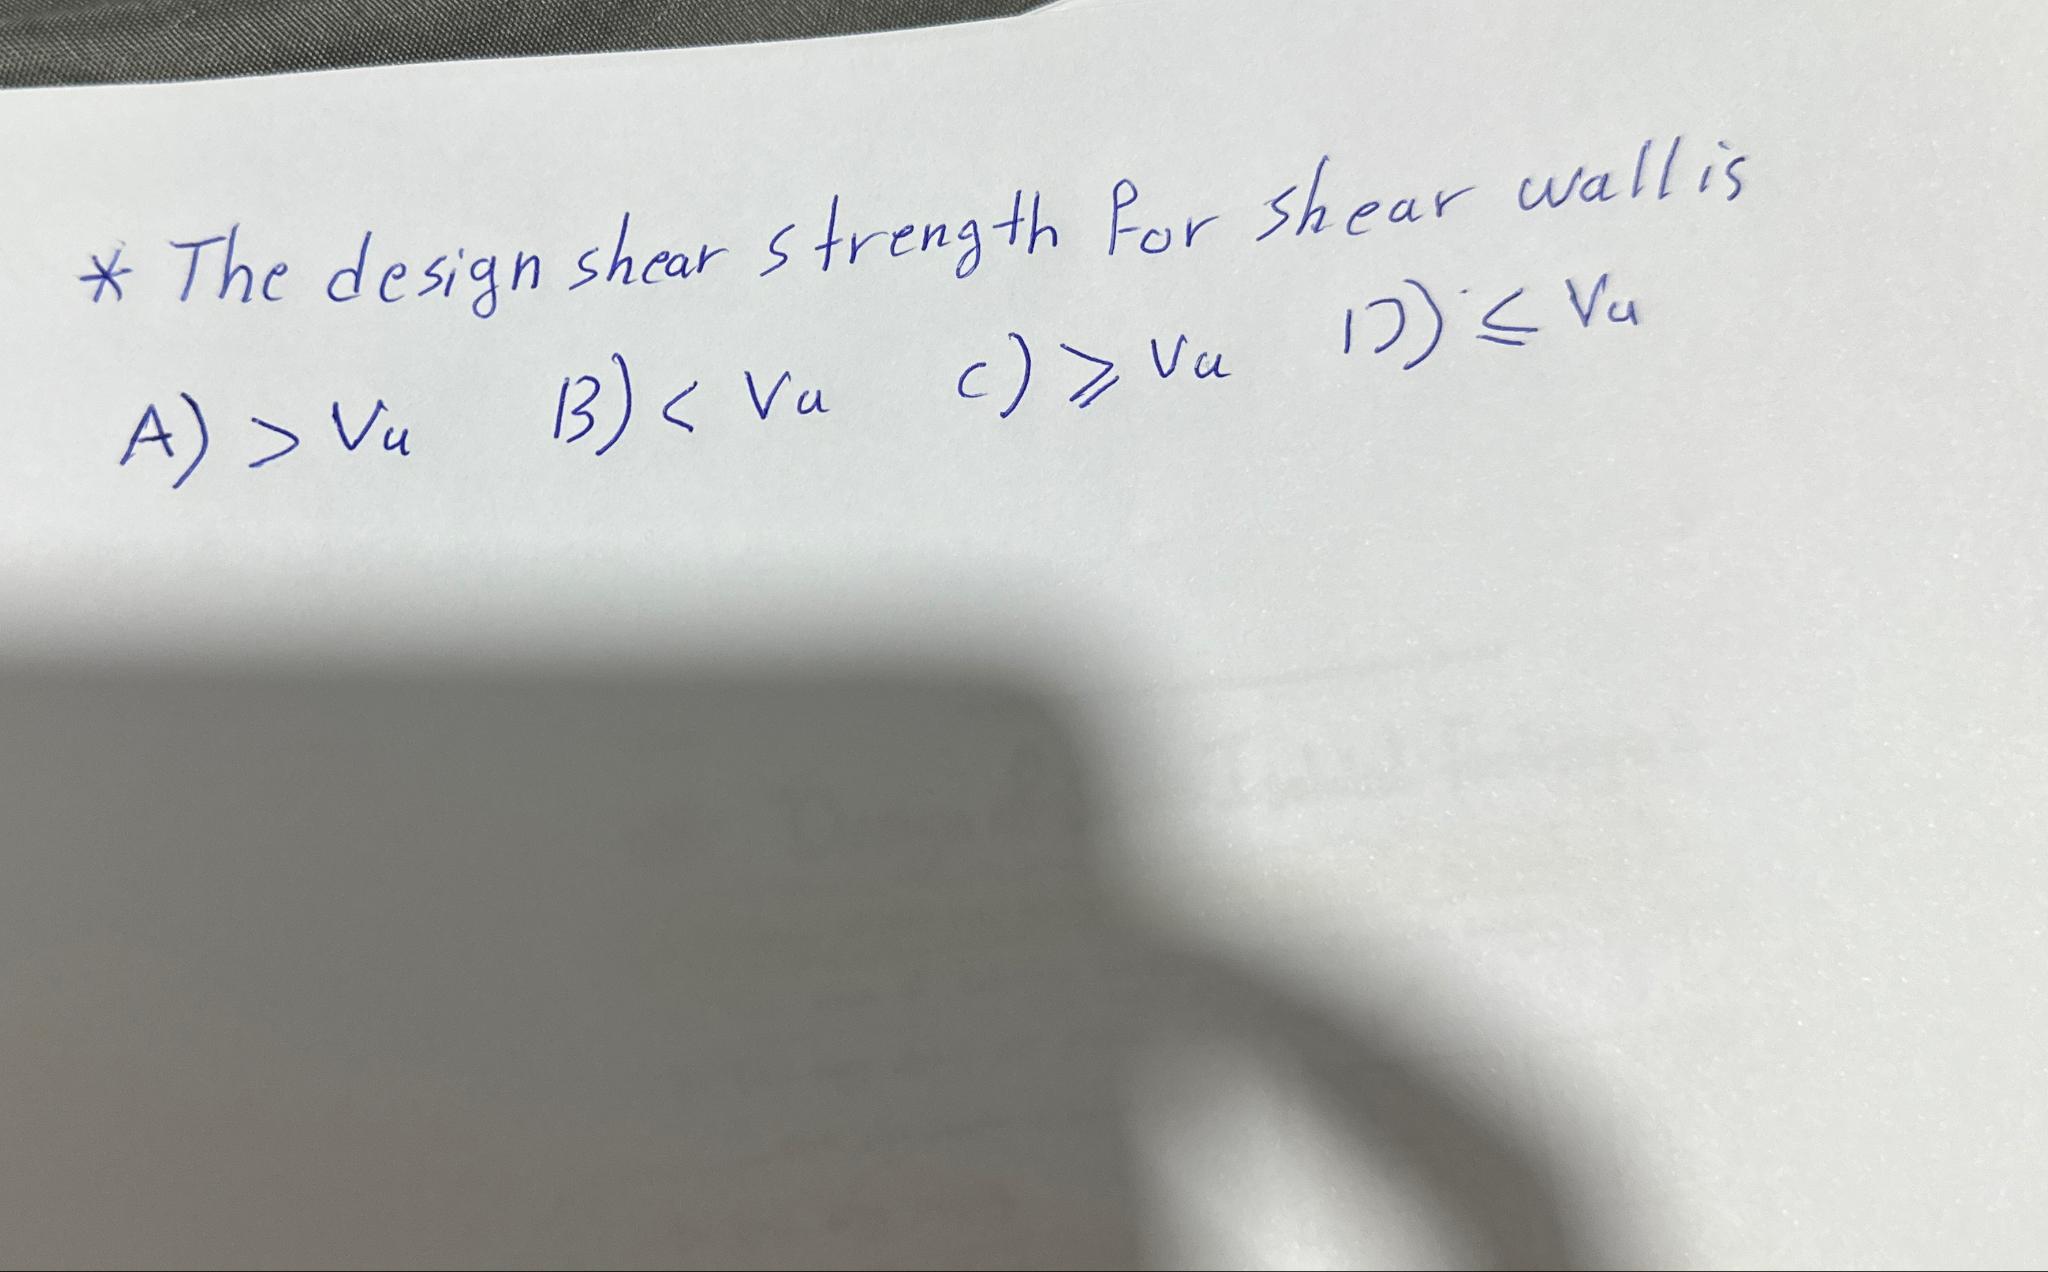 * The design shear strength for shear wall is
A) > Vu B) < Vu C) ⩾ Vu D) ≤ Vu